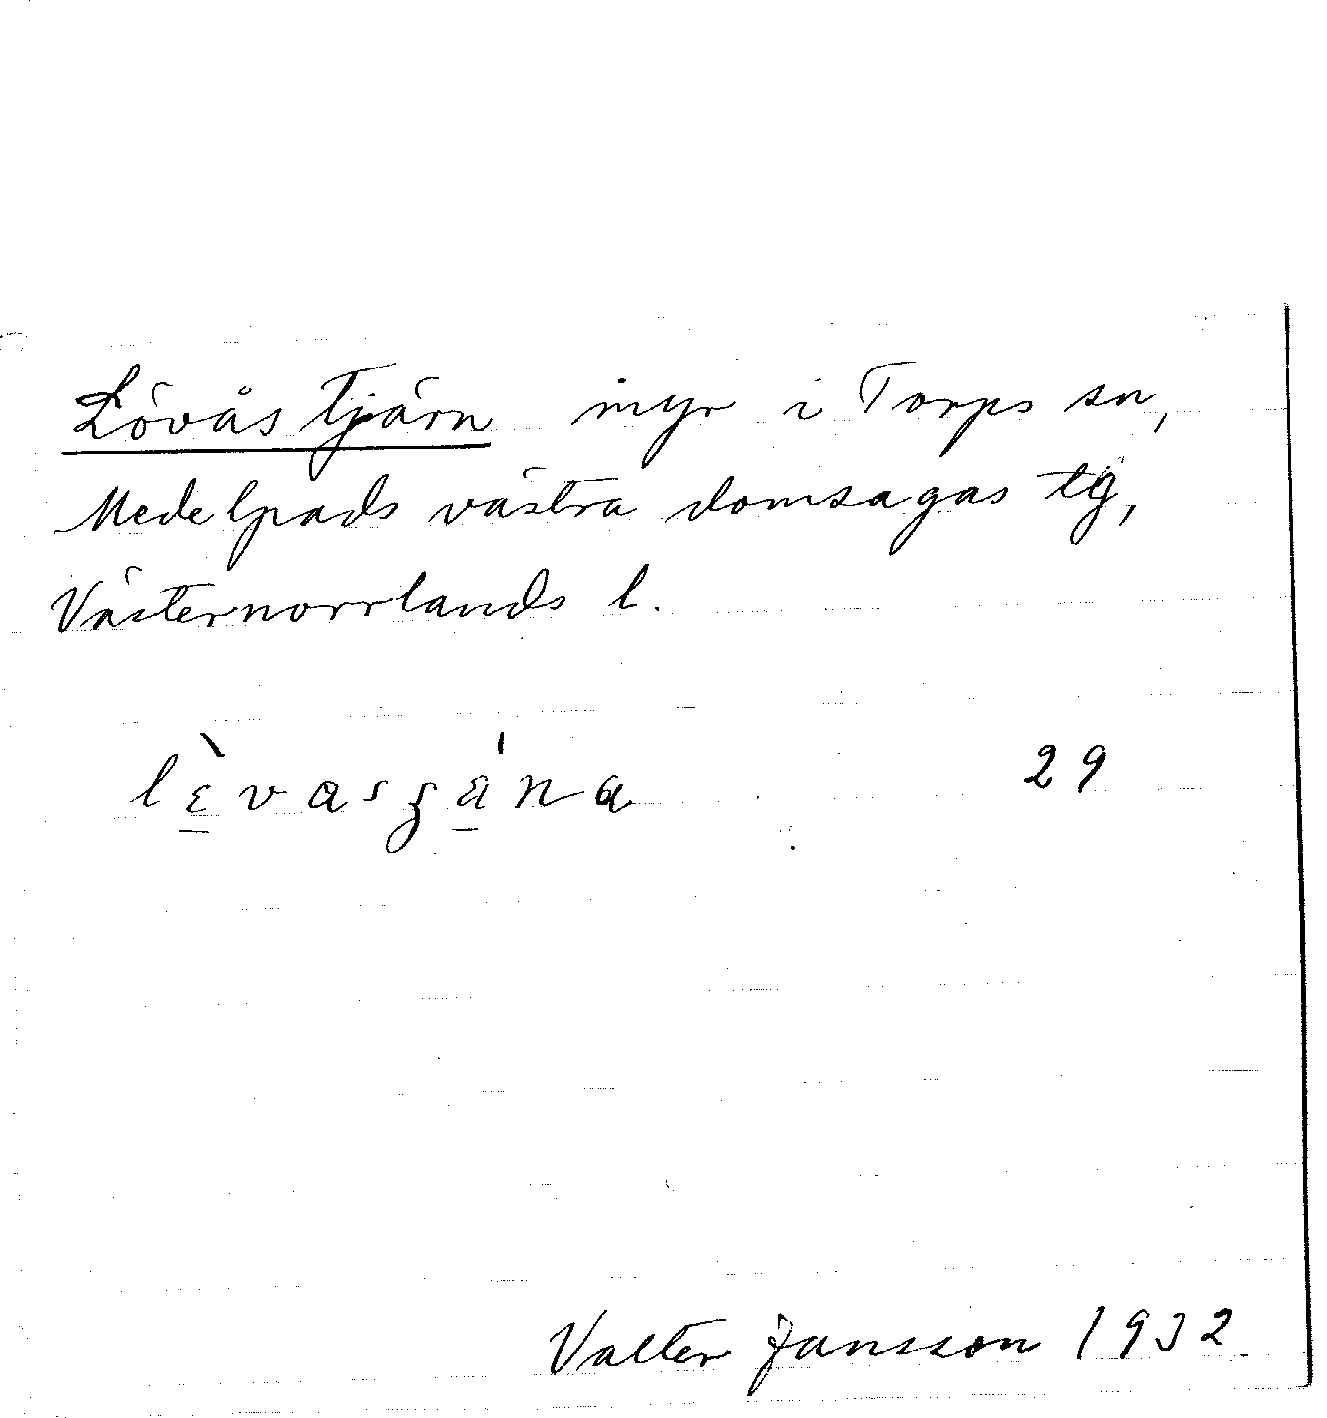 Lövåstjärn myr i Torps sn,
Medelpads västra domsagas tg,
Västernorrlands l.
lɛ̠̀vasʒä̠́na 29
Valter Jansson 1932